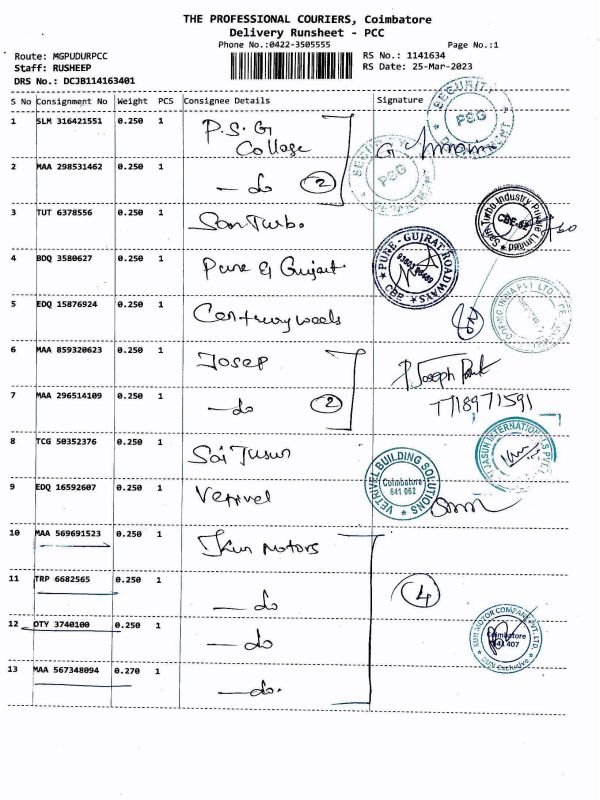 THE PROFESSIONAL COURIERS, Coimbatore
Delivery Runsheet - PCC
Phone No.:0422-3505555
Page No.:1
Route: MGPUDURPCC
RS No.: 1141634
Staff: RUSHEEP
RS Date: 25-Mar-2023
DRS No.: DCJB114163401
S No Consignment No Weight PCS Consignee Details Signature
1 SLM 316421551 0.250 1 P.S.G College
SECURITY DEPARTMENT PSG
SECURITY DEPARTMENT PSG
2 MAA 298531462 0.250 1 — do (2)
3 TUT 6378556 0.250 1 Sam Turbo
Sam Turbo Industry Private Limited CBE-62
4 BDQ 3580627 0.250 1 Pune & Gujart
PUNE - GUJRAT ROADWAYS CBE
5 EDQ 15876924 0.250 1
6 MAA 859320623 0.250 1 Josep
P Joseph
7 MAA 296514109 0.250 1 — do (2)
7718971591
8 TCG 50352376 0.250 1 Sai Jusun
JASUN INTERNATIONALS
9 EDQ 16592607 0.250 1 Vetrivel
VETRIVEL BUILDING SOLUTIONS Coimbatore 641 062
10 MAA 569691523 0.250 1 Kun Motors
11 TRP 6682565 0.250 1 — do (4)
12 OTY 3740100 0.250 1 — do
KUN MOTOR COMPANY PVT. LTD. Coimbatore 641 407 KUN Exclusive
13 MAA 567348094 0.270 1 — do.